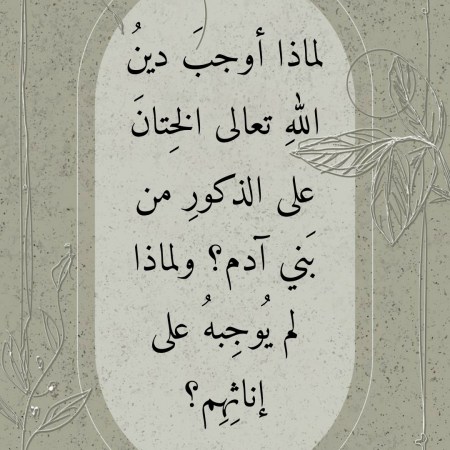 لماذا أوجبَ دينُ
اللهِ تعالى الخِتانَ
على الذكورِ من
بَني آدم؟ ولماذا
لم يُوجِبهُ على
إناثِهِم؟